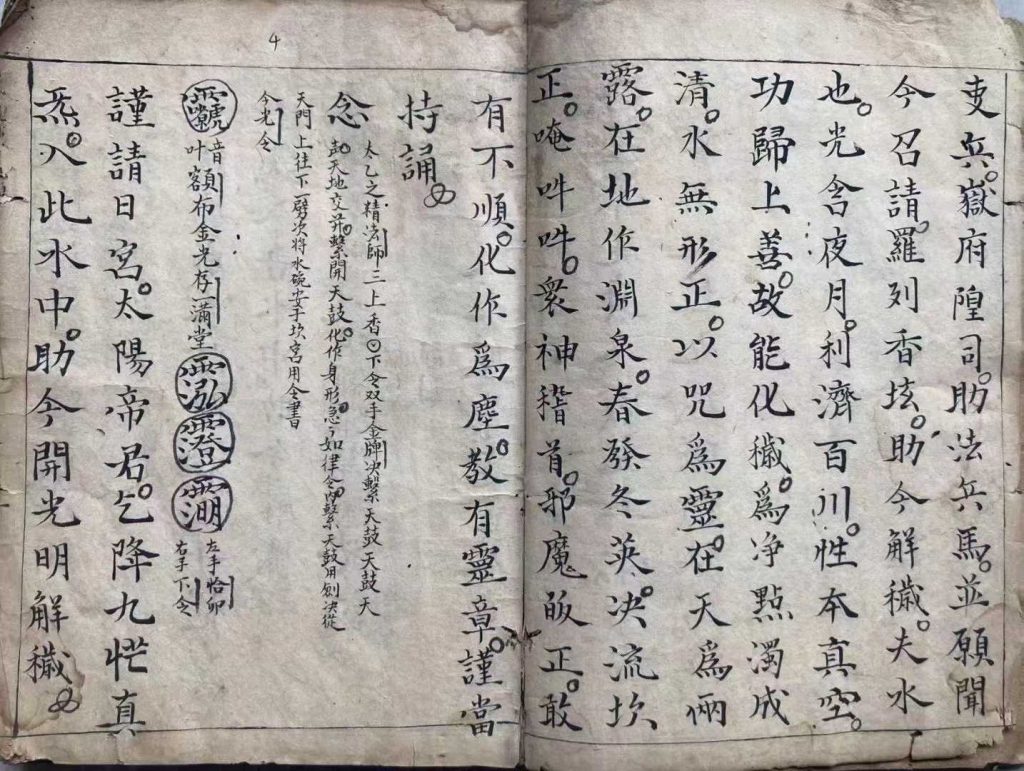 吏兵。嶽府隍司。助法兵馬。並願聞
今召請。羅列香垓。助今解穢。夫水
也。光含夜月。利濟百川。性本真空。
功歸上善。故能化穢。為净點濁成
清。水無形正。以咒為靈。在天為雨
露。在地作淵泉。春發冬英。决流坎
正。唵吽吽。衆神稽首。邪魔皈正。敢
有不順。化作為塵。教有靈章。謹當
持誦。
念
太乙之精法師三上香。下令双手金牌决繫天鼓天鼓天
天地交并繫開天鼓化作身形急々如律令繫天鼓用剑决從
天門上往下一劈次将水碗安于坎宮用令書
今光令
音額布金光存滿堂
左手恰卯
右手下令
謹請日宮。太陽帝君。乞降九炁真
炁。入此水中。助今開光明解穢
4